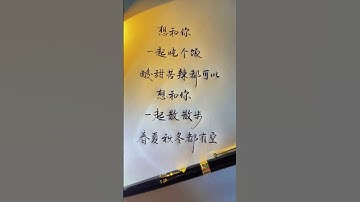 想和你
一起吃个饭
酸甜苦辣都可以
想和你
一起散散步
春夏秋冬都有空